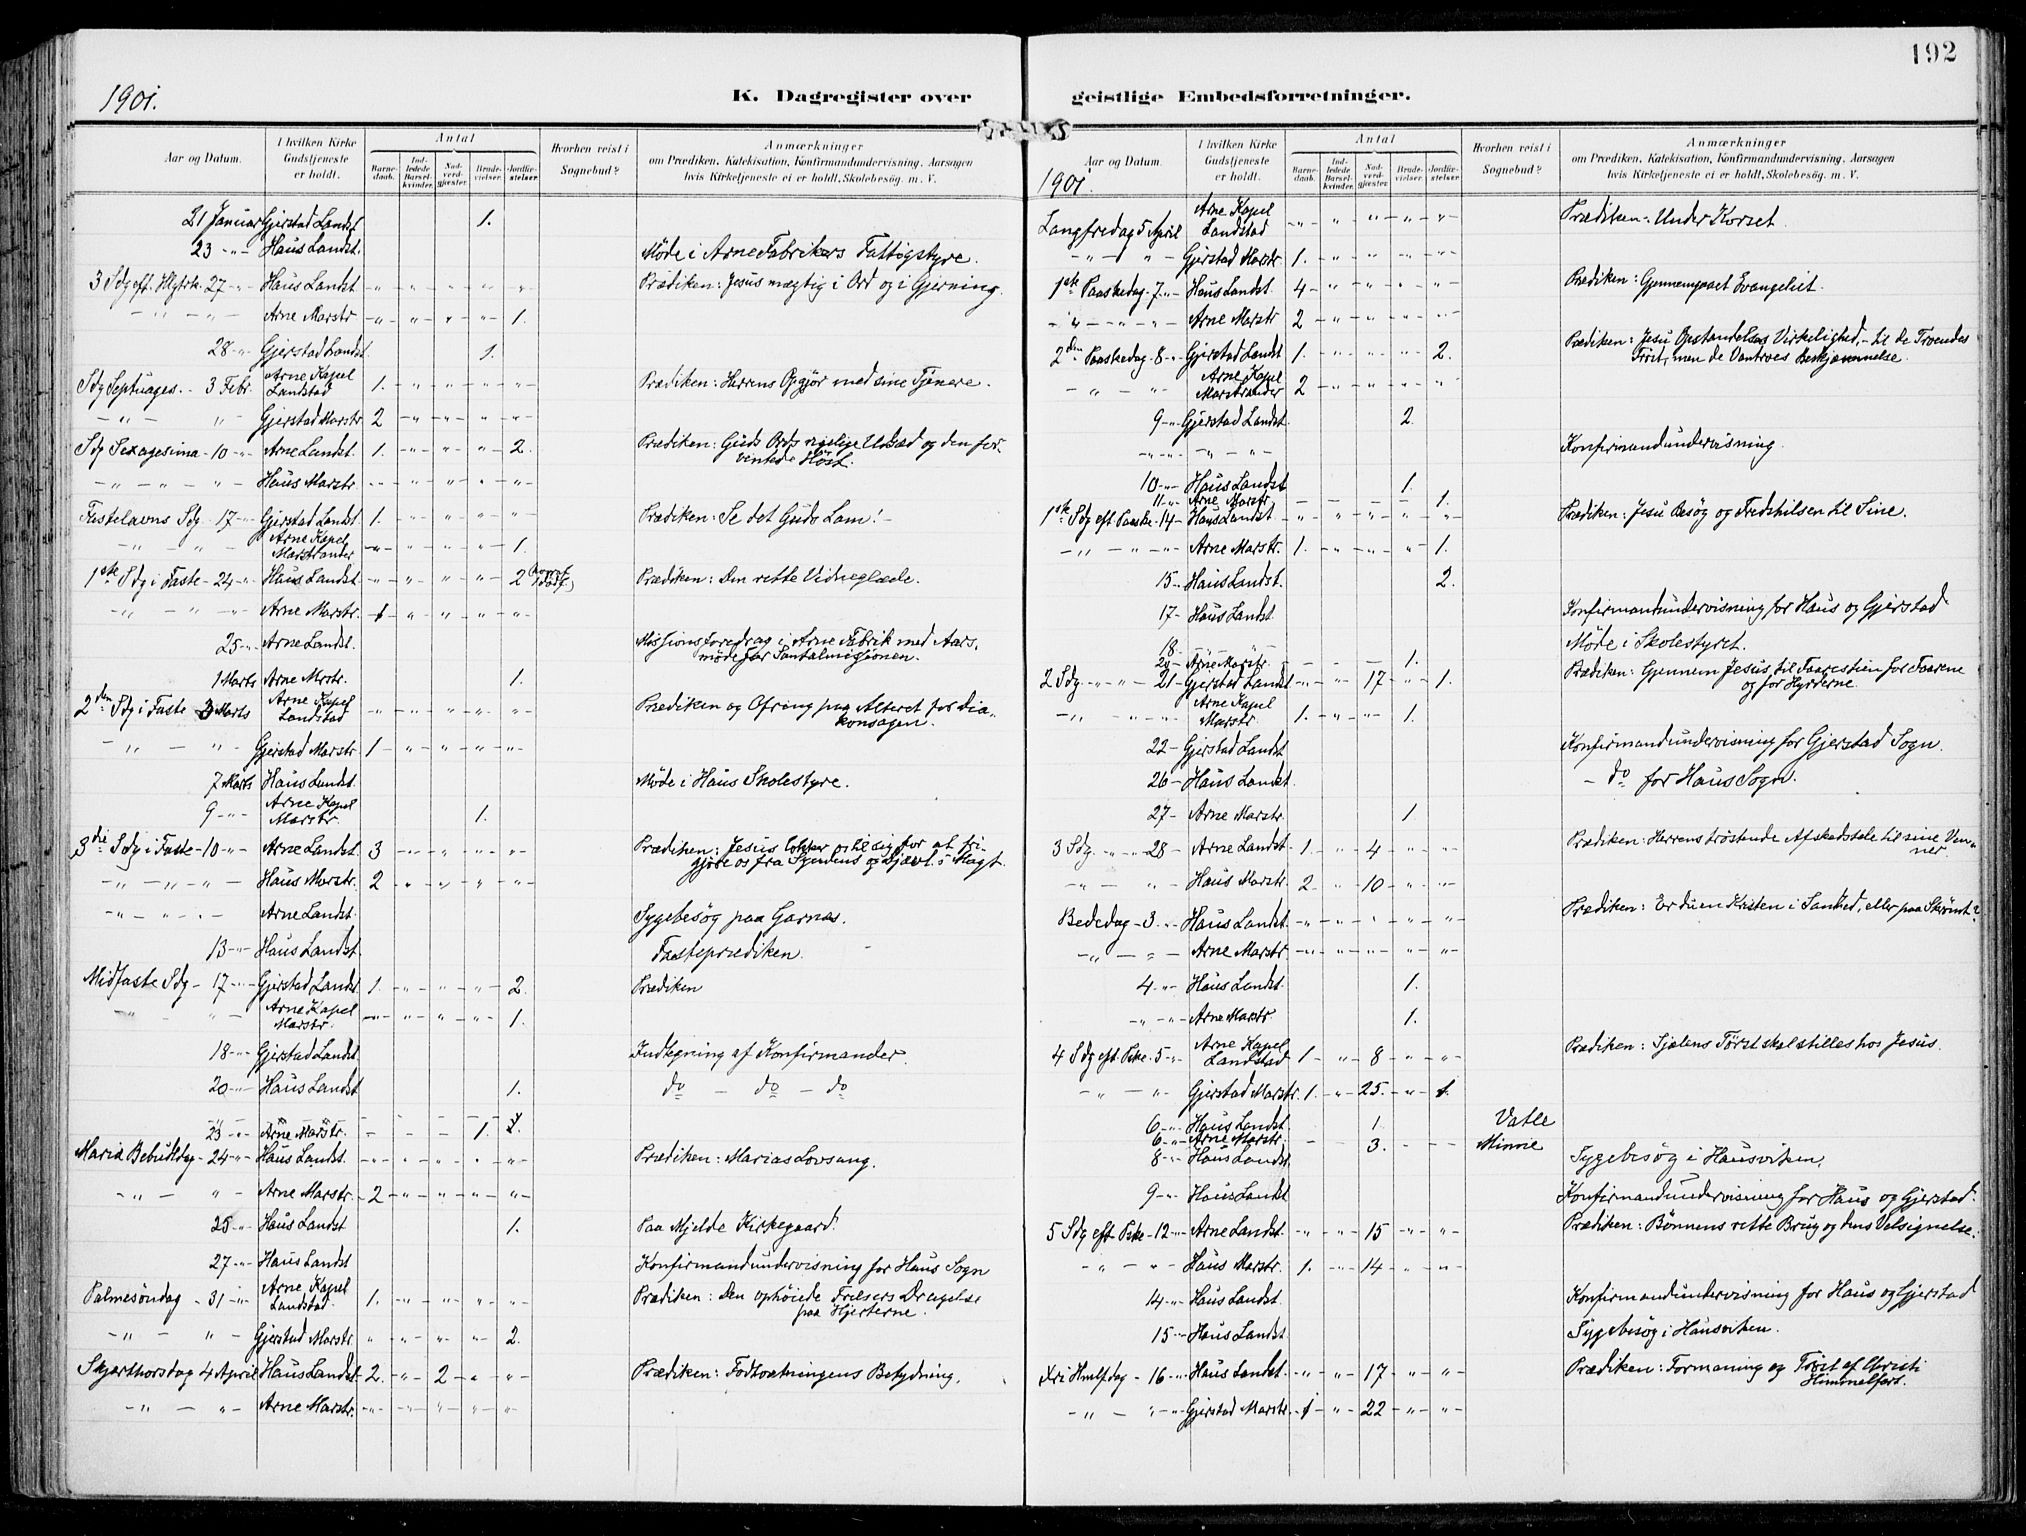 192
1901.
K. Dagregister over geistlige Embedsforretninger.
Aar og Datum.
I hvilken Kirke Gudstjeneste er holdt.
Antal
Barnedaab.
Indledede Barselkvinder.
Nadverdgjæster.
Brudevielser.
Jordfæstelser.
Hvorhen reist i Sognebud?
Anmærkninger
om Prædiken, Katekisation, Konfirmandundervisning, Aarsagen
hvis Kirketjeneste ei er holdt, Skolebesøg. m. V.
21 Januar Gjerstad Landst. 1.
23 -"- Haus Landst. Møde i Arne Fabrikers Fattigstyre.
3 Sdg eft. Hlgtrk. 27 -"- Haus Landst - " - " - " - " - " Prædiken: Jesus mægtig i Ord og i Gjerning.
- " - " - Arne Marstr - " - " - " - " - 1.
28 -"- Gjerstad Landst. 1.
Sdg Septuages. - 3 Febr. Arne Kapel Landstad 1. - " - " - " - " Prædiken: Herrens Opgjør med sine Tjenere.
- " - " - Gjerstad Marstr 2 - " - " - " - "
Sdg Sexagesima - 10 -"- Arne Landst. 1. - " - " - " - 2. Prædiken: Guds Ords rigelige Udsæd og den forventede Høst.
- " - " - " - Haus Marstr - " - " - " - " - "
Fastelavns Sdg - 17 -"- Gjerstad Landst 1. - " - " - " - " Prædiken: Se det Guds Lam! -
- " - " - Arne Kapel Marstrander - " - " - " - " - 1.
1ste Sdg i Faste - 24 -"- Haus Landst - " - " - " - " - 2 Prædiken: Den rette Vidneglæde.
- " - " - Arne Marstr. - 1 - " - " - " - "
25 -"- Arne Landst. Missionsforedrag i Arne Fabrik med Aarsmøde for Santalmissionen.
1 Marts Arne Mrstr. 1.
2den Sdg i Faste 3 Marts Arne Kapel Landstad - " - " - " - " - " Prædiken og Ofring paa Alteret for Diakonsagen.
- " - " - Gjerstad Marstr - 1 - " - " - " - "
7 Marts Haus Landst. Møde i Haus Skolestyre.
9 -"- Arne Kapel Marstr. 1.
3die Sdg i Faste - 10 -"- Arne Landst. 3 - " - " - " - " Prædiken: Jesus lokker os til sig for at frigjøre os fra Syndens og Djævl.s Magt.
- " - " - " - Haus Marstr. 2 - " - " - " - "
- " - " - Arne Landst. Sygebesøg paa Garnæs.
13 -"- Haus Landst. Fasteprædiken.
Midfaste Sdg - 17 -"- Gjerstad Landst 1. - " - " - " - 2. Prædiken
" - Arne Kapel Marstr. - " - " - " - " - 1.
18 -"- Gjerstad Landst Indtegning af Konfirmander.
20 -"- Haus Landst 1. do - do - do
23 -"- Arne Marstr. - - - 1. 1.
Maria Bebudldag - 24 -"- Haus Landst. - " - " - " - " - " Prædiken: Marias Lovsang.
- " - " - Arne Marstr. - 2 - " - " - " - "
25 -"- Haus Landst 1. Paa Mjelde Kirkegaard.
27 -"- Haus Landst Konfirmandundervisning for Haus Sogn
Palmesøndag - 31 -"- Arne Kapel Landstad 1. - " - " - " - " Prædiken: Den ophøiede Frelsers Dragelse paa Hjerterne.
- " - " - Gjerstad Marstr. " - " - " - " - 2.
Skjærthorsdag 4 April Haus Landst. 2. - " - 2 - " - " Prædiken: Fodtvætningens Betydning.
- " - " - Arne Marstr. - " - " - " - " - "
Aar og Datum.
I hvilken Kirke Gudstjeneste er holdt.
Antal
Barnedaab.
Indledede Barselkvinder.
Nadverdgjæster.
Brudevielser.
Jordfæstelser.
Hvorhen reist i Sognebud?
Anmærkninger
om Prædiken, Katekisation, Konfirmandundervisning, Aarsagen
hvis Kirketjeneste ei er holdt, Skolebesøg. m. V.
1901.
Langfredag 5 April Arne Kapel Landstad - " - " - " - " - " Prædiken: Under Korset.
- " - " - Gjerstad Marstr 1. - " - " - " - "
1ste Paaskedag - 7 -"- Haus Landst. 4 - " - " - " - " Prædiken: Gjennemgaaet Evangeliet.
- " - " - " - Arne Marstr 2 - " - " - " - "
2den Paaskedag - 8 -"- Gjerstad Landst 1. - " - " - " - 2. Prædiken: Jesu Opstandelses Virkelighed, - til de Troendes Trøst, men de Vantroes Beskjæmmelse.
- " - " - Arne Kapel Marstrander 2 - " - " - " - "
9 -"- Gjerstad Landst. 2.
- " - " - " - " - Konfirmandundervisning.
10 -"- Haus Landst 1.
11 -"- Arne Marstr. - - - - 1.
1ste Sdg eft Paaske - 14 - Haus Landst - " - " - " - " - " Prædiken: Jesu Besøg og Fredshilsen til Sine.
- " - " - " - Arne Marstr. 1. - " - " - " - 1.
15 -"- Haus Landst. 2.
17 - Haus Landst Konfirmandundervisning for Haus og Gjerstad
18 - Møde i Skolestyret.
20 - Arne Marstr. - - - 1.
2 Sdg - " - " - 21 - Gjerstad Landst - " - " - 17 - " - 1. Prædiken: Gjennem Jesus til Faarestien for Faarene og for Hyrderne.
- " - " - " - Arne Kapel Marstr. 1. - " - " - 1.
22 - Gjerstad Landst Konfirmandundervisning for Gjerstad Sogn.
26 - Haus Landst. - do for Haus Sogn.
27 - Arne Marstr. 1.
3 Sdg. - " - " 28 - Arne Landst 1. - " - 4 - " - " Prædiken: Herrens trøstende Afskedstale til sine Venner.
- " - " - Haus Marstr. 2 - " - 10 - " - "
Bededag - 3 -"- Haus Landst. - " - " - " - " - " Prædiken: Er du en Kristen i Sandhed, eller paa Skrømt?
- " - " - Arne Marstr - " - " - " - " - "
4 -"- Haus Landst. 1.
- " - " - Arne Marstr. 1.
4 Sdg eft Pske. 5 -"- Arne Kapel Landstad - 1 - " - 8 - " - " Prædiken: Sjælens Tørst skal stilles hos Jesus.
- " - " - Gjerstad Marstr. 1. - " - 25. - " - 1.
6 -"- Haus Landst. 1. Vatle
6 -"- Arne Marstr. - - 3. - - Minne
8 -"- Haus Landst. Sygebesøg i Hausviken.
9 -"- Haus Landst Konfirmandundervisning for Haus og Gjerstad.
5 Sdg eft Pske - 12 -"- Arne Landst. - " - " - 15 - " - " Prædiken: Bønnens rette Brug og dens Velsignelse.
- " - " - Haus Marstr. 1. - " - 14 - " - "
14 -"- Haus Landst. Konfirmandundervisning for Haus og Gjerstad
15 -"- Haus Landst. Sygebesøg i Hausviken.
Kri Hmlfdag - 16 -"- Haus Landst. - " - " - 17 - " - " Prædiken: Formaning og Trøst af Christi Himmelfart.
- " - " - Gjerstad Marstr. - 1 - " - 22 - " - "